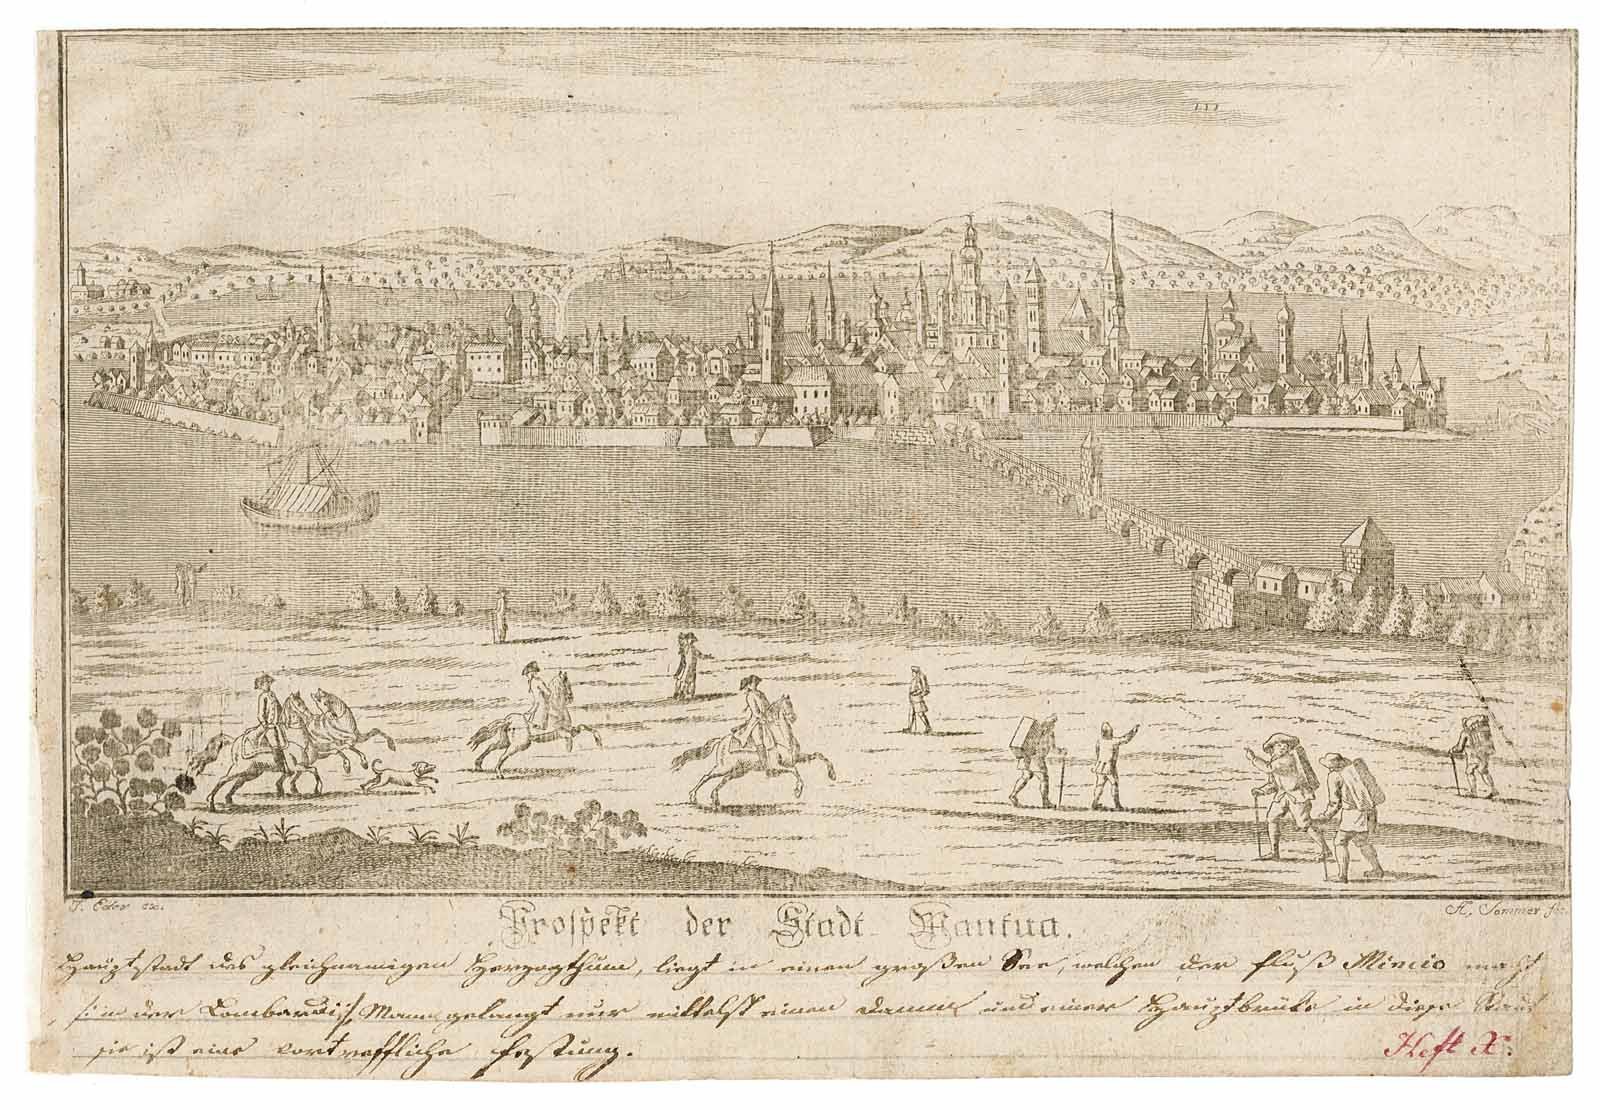 J. Eder exc.
A. Sommer fec.
Prospekt der Stadt Mantua.
Hauptstadt des gleichnamigen Herzogthum, liegt in einen großen See, welchen der Fluß Mincio macht
/: in der Lombardis:/ Man gelangt nur mittelst eines Damms und einer Hauptbrüke in diese Stadt
sie ist eine vortreffliche Festung.
Heft X.